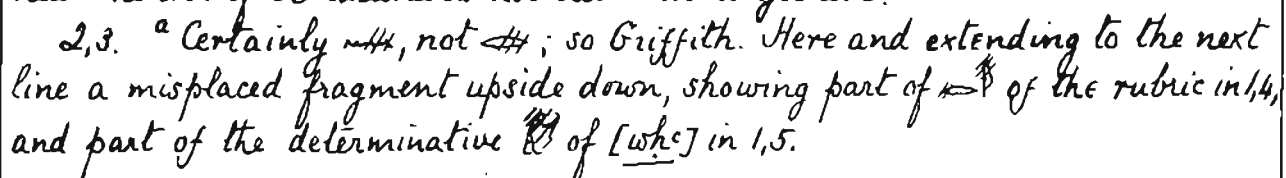 2,3. ᵃ Certainly, not ; so Griffith. Here and extending to the next
line a misplaced fragment upside down, showing part of of the rubric in 1,4,
and part of the determinative of [wḥꜥ] in 1,5.